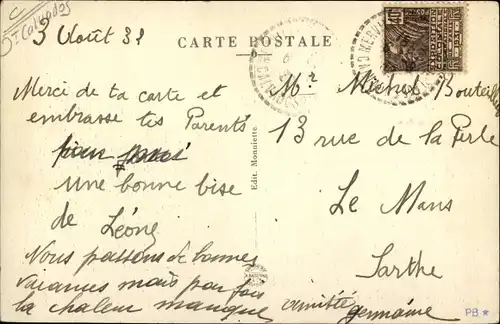 Calvados
3 Août 31
CARTE POSTALE
Merci de ta carte et
embrasse tes Parents
pour
une bonne bise
de Léone
Nous passons de bonnes
vacances mais par fois
la chaleur manque
amitié
germaine
Edit. Monniette
Mr Michel Bouteilly
13 rue de la Perle
Le Mans
Sarthe
PB